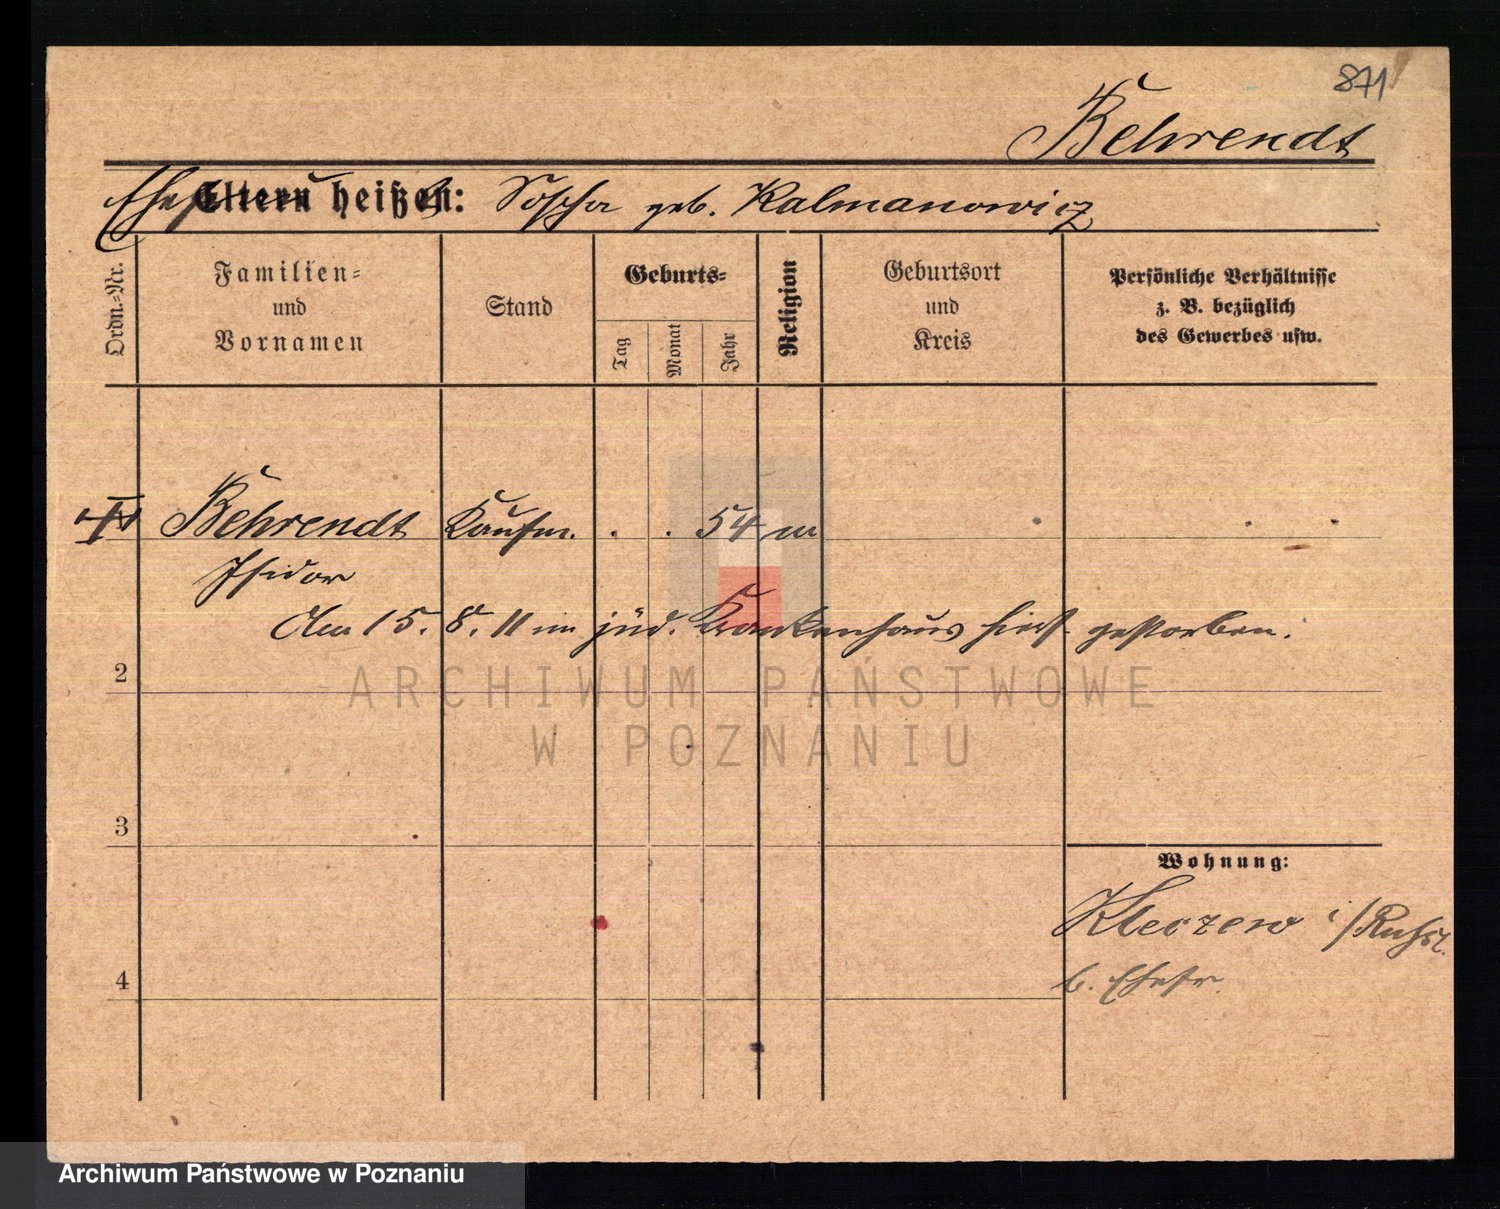 871
Behrendt
Eltern heißen: Sofcha geb. Kalmanowicz
Ordn.-Nr.
Familien- und Vornamen
Stand
Geburts-
Tag
Monat
Jahr
Religion
Geburtsort und Kreis
Persönliche Verhältnisse
z. B. bezüglich
des Gewerbes usw.
Behrendt Kaufm. . . 54 m . . .
Isidor
Am 15. 8. 11 im jüd. Krankenhaus hies. gestorben.
2
ARCHIWUM PAŃSTWOWE
W POZNANIU
3
Wohnung:
Kleczew i/Russl.
b. Ehefr.
4
Archiwum Państwowe w Poznaniu